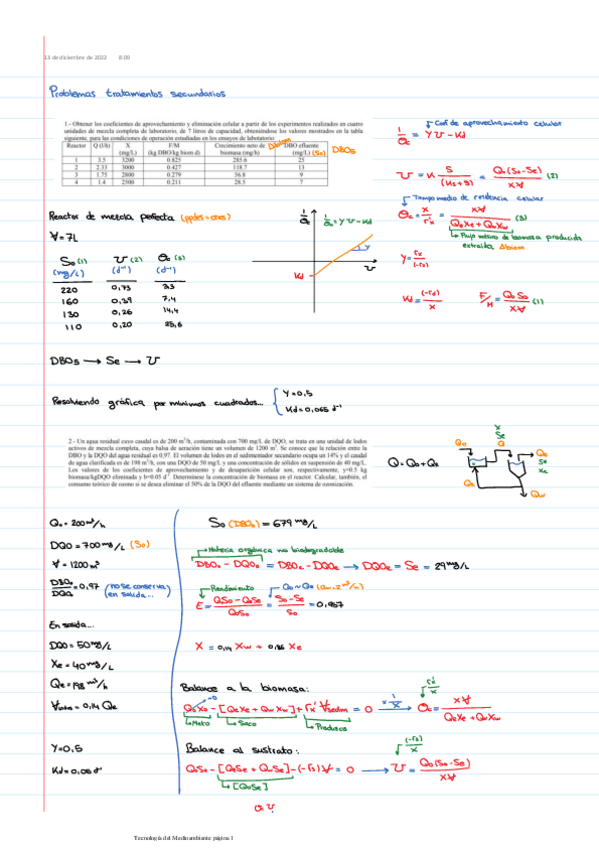 13 de diciembre de 2022 8:00
Problemas tratamientos secundarios
1.- Obtener los coeficientes de aprovechamiento y eliminación celular a partir de los experimentos realizados en cuatro
unidades de mezcla completa de laboratorio, de 7 litros de capacidad, obteniéndose los valores mostrados en la tabla
siguiente, para las condiciones de operación estudiadas en los ensayos de laboratorio:
Reactor Q (l/h) X (mg/L) F/M (kg DBO/kg biom d) Crecimiento neto de biomasa (mg/h) DBO efluente (mg/L) (Se) DBO5
1 3.5 3200 0.825 285.6 25
2 2.33 3000 0.427 118.7 13
3 1.75 2800 0.279 56.8 9
4 1.4 2500 0.211 28.5 7
Coef de aprovechamiento celular
1/θc = Y U - Kd
U = K S/(Ks+S) = Qo(So-Se)/X∀ (2)
Tiempo medio de residencia celular
θc = X/r'x = X∀/(QeXe + QwXw) (3)
Flujo másico de biomasa producida
extraída
Y = rx/(-rs)
Kd = (-rd)/X F/M = QoSo/X∀ (1)
Reactor de mezcla perfecta
∀ = 7L
So (1) U (2) θc (3)
(mg/L) (d⁻¹) (d⁻¹)
220 0,73 3,3
160 0,39 7,4
130 0,26 14,4
110 0,20 25,6
1/θc
1/θc = Y U - Kd
Y
U
Kd
DBO5 → Se → U
Resolviendo gráfica por mínimos cuadrados... { Y = 0,5
Kd = 0,065 d⁻¹
2.- Un agua residual cuyo caudal es de 200 m³/h, contaminada con 700 mg/L de DQO, se trata en una unidad de lodos
activos de mezcla completa, cuya balsa de aeración tiene un volumen de 1200 m³. Se conoce que la relación entre la
DBO y la DQO del agua residual es 0,97. El volumen de lodos en el sedimentador secundario ocupa un 14% y el caudal
de agua clarificada es de 198 m³/h, con una DQO de 50 mg/L y una concentración de sólidos en suspensión de 40 mg/L.
Los valores de los coeficientes de aprovechamiento y desaparición celular son, respectivamente, y=0.5 kg
biomasa/kgDQO eliminada y b=0.05 d⁻¹. Determínese la concentración de biomasa en el reactor. Calcular, también, el
consumo teórico de ozono si se desea eliminar el 50% de la DQO del efluente mediante un sistema de ozonización.
Q = Qo + QR
X
Se
Qo
Qe
Se
Xe
QR
Qw
Qo = 200 m³/h
DQO = 700 mg/L (So)
∀ = 1200 m³
DBO5/DQO = 0,97 (no se conserva
en salida...
En salida...
DQO = 50 mg/L
Xe = 40 mg/L
Qe = 198 m³/h
Y = 0,5
Kd = 0,05 d⁻¹
So (DBOo) = 679 mg/L
Materia orgánica no biodegradable
DBOo - DQOo = DBOe - DQOe → DQOe = Se = 29 mg/L
Rendimiento Qo ≈ Qe (Qw=2 m³/h)
E = (QoSo - QeSe)/QoSo = (So-Se)/So = 0,957
X = 0,14 Xw + 0,86 Xe
Balance a la biomasa:
QoXo - [QeXe + QwXw] + r'x ∀sedim = 0 → θc = X∀/(QeXe + QwXw)
Meto Saco Produzco
Balance al sustrato:
QoSo - [QeSe + QwSe] - (-rs)∀ = 0 → U = Qo(So-Se)/X∀
[QoSe]
Tecnología del Medioambiante página 1